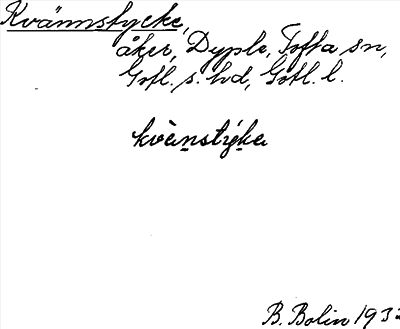 Kvännstycke,
åker, Dyple, Tofta sn,
Gotl. s. hd, Gotl. l.
kvànstýka
B. Bolin 193